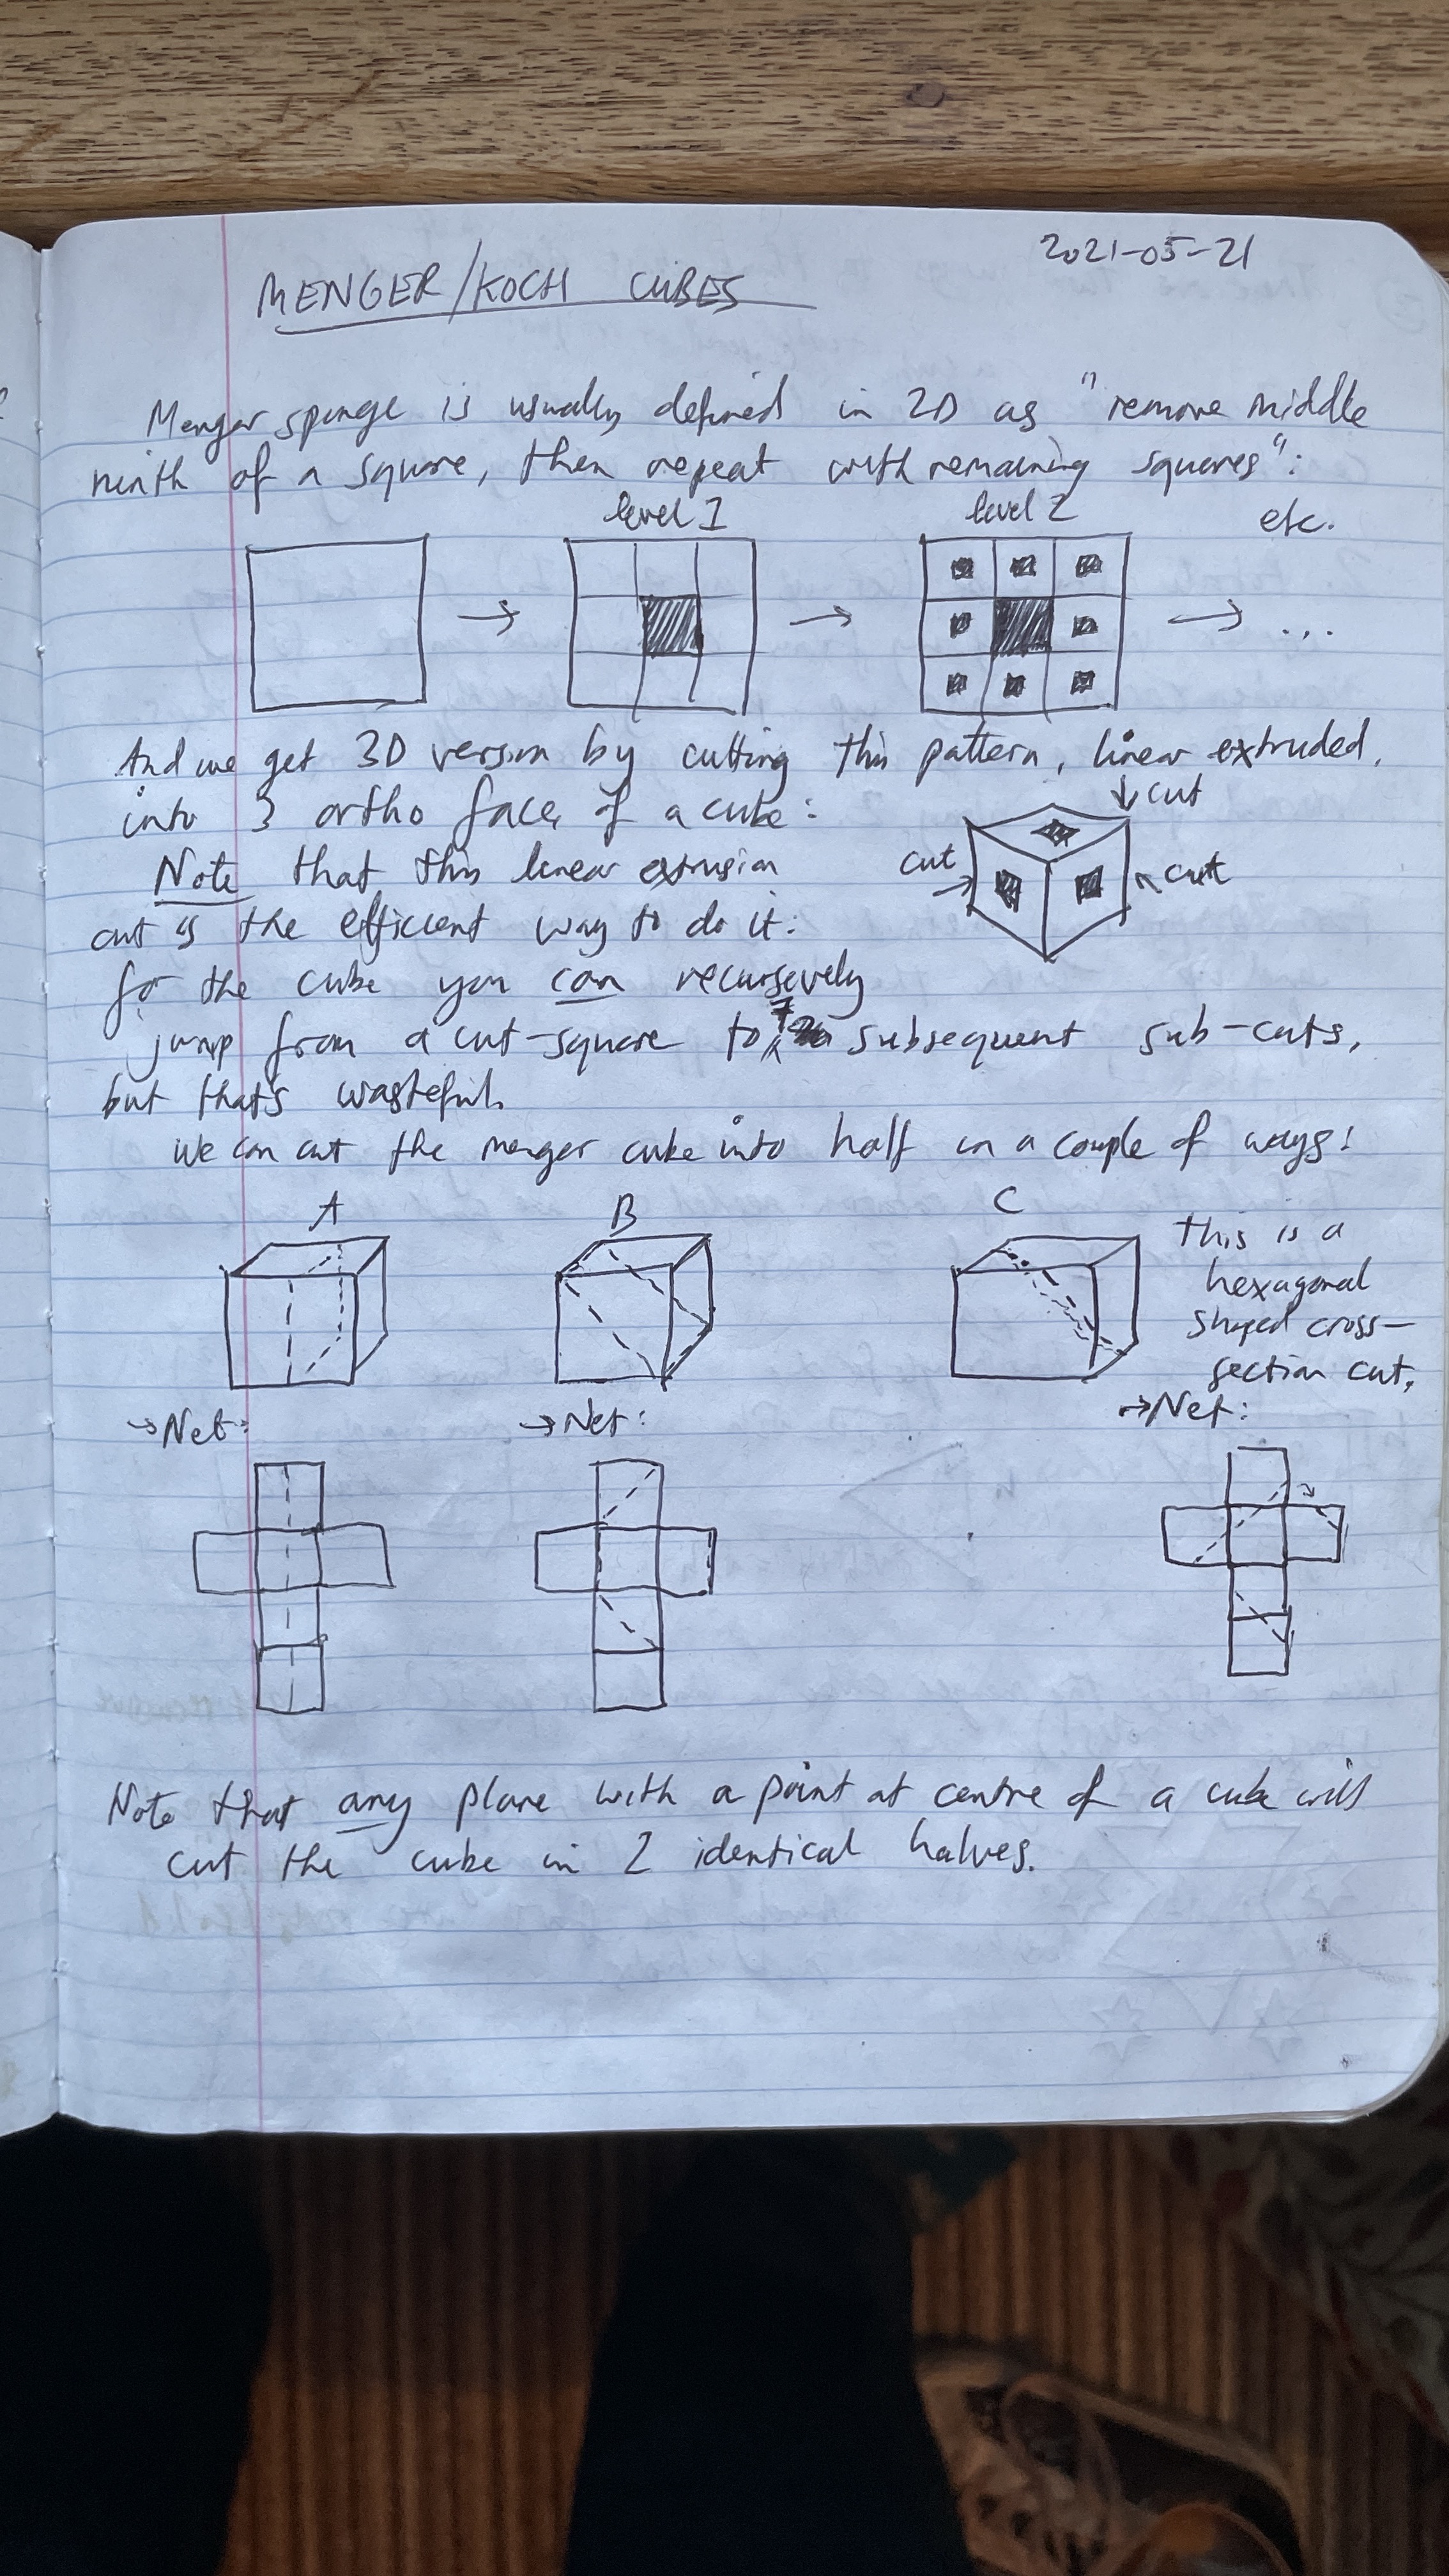 2021-05-21
MENGER/KOCH CUBES
Menger sponge is usually defined in 2D as "remove middle
ninth of a square, then repeat with remaining squares":
level 1
level 2
etc.
→ → → ...
And we get 3D version by cutting this pattern, linear extruded,
into 3 ortho faces of a cube:
↓ cut
cut →
cut
Note that this linear extrusion
cut is the efficient way to do it:
for the cube you can recursively
jump from a cut-square to 7 subsequent sub-cuts,
but that's wasteful.
We can cut the menger cube into half in a couple of ways:
A
B
C
This is a
hexagonal
shaped cross-
section cut.
→ Net:
→ Net:
→ Net:
Note that any plane with a point at centre of a cube will
cut the cube in 2 identical halves.